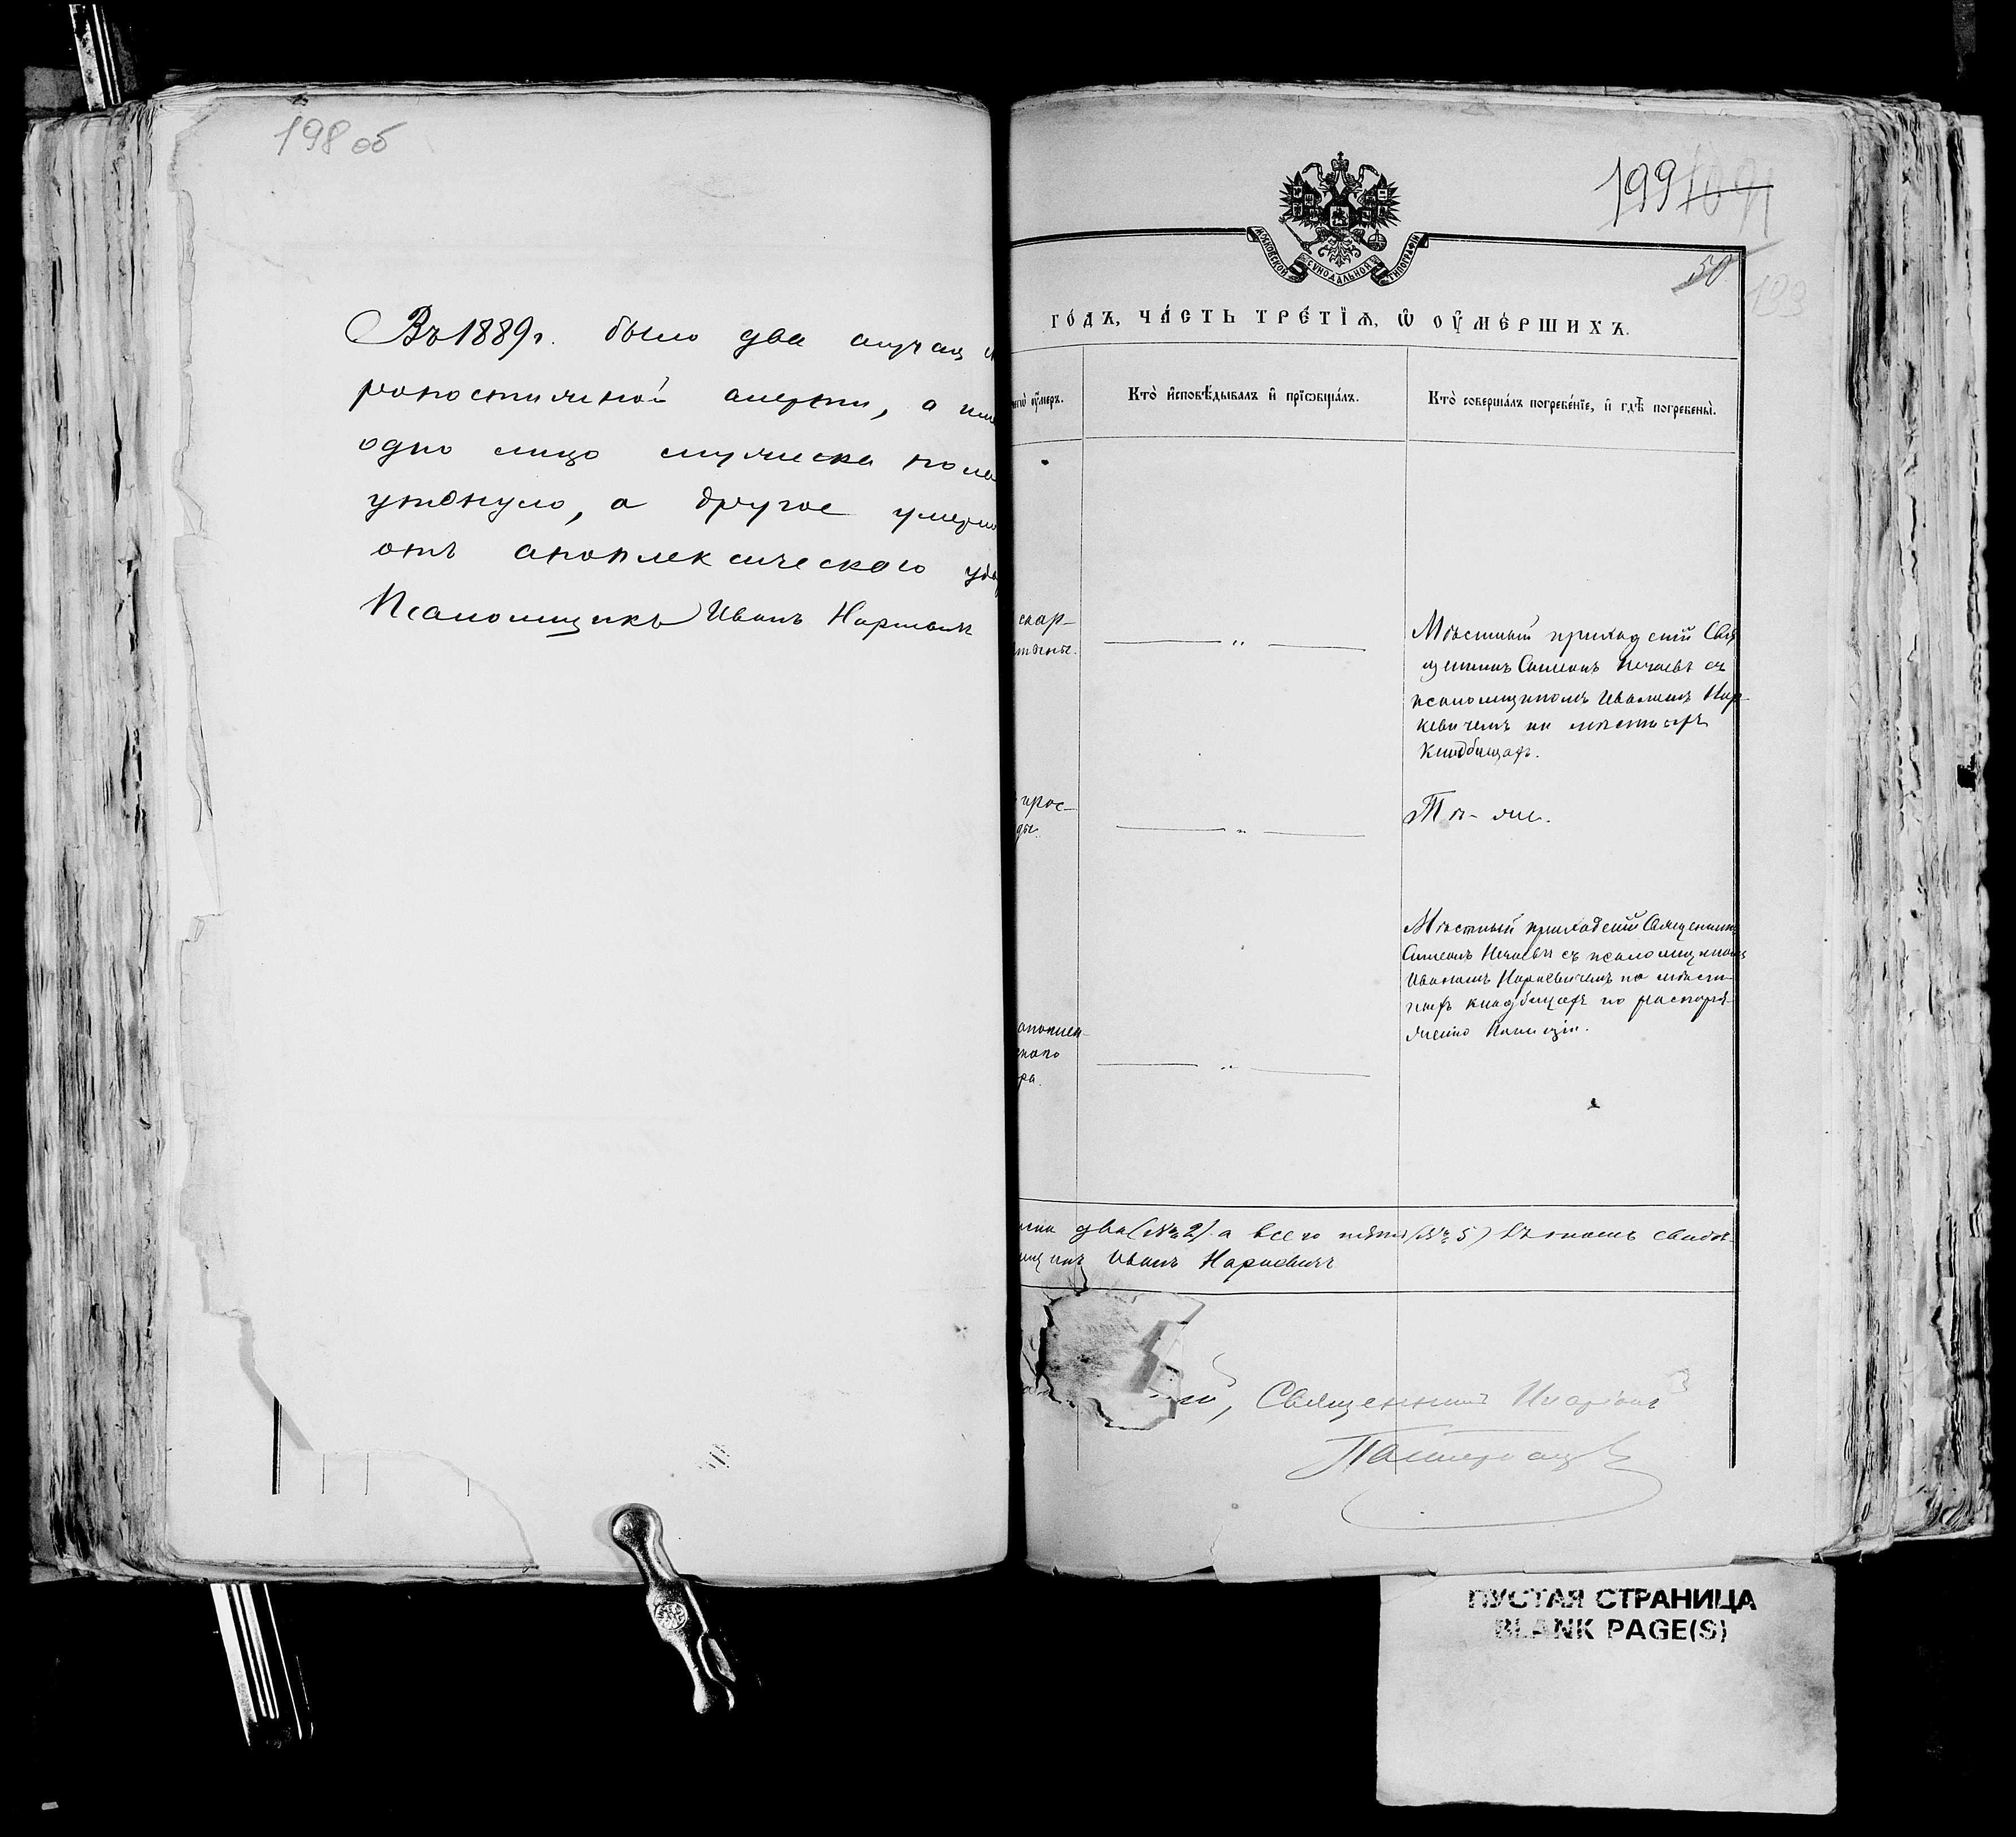 198 об
Въ 1889 г. было два случая
ропостижной смерти, а
одно лицо мужеска пола
утонуло, а другое умерло
отъ апоплексическаго уда
Псаломщикъ Иванъ Наркевич
199
50
123
МОСКОВСКОЙ СѴНОДАЛЬНОЙ ТИПОГРАФІИ
ГО́ДЪ, ЧА́СТЬ ТРЕ́ТІѦ, Ѡ҆ ОУ҆МЕ́РШИХЪ.
чегѡ̀ оу҆́меръ.
Кто̀ и҆сповѣ́дывалъ и҆ прїѡбща́лъ.
Кто̀ соверша́лъ погребе́нїе, и҆ гдѣ̀ погребены̀.
скар-
латины.
Мѣстный приходскій Свя
щенникъ Симеонъ Нечаевъ съ
псаломщикомъ Иваномъ Нар-
кевичемъ на мѣстномъ
кладбищѣ.
прос-
ды.
Тѣ-же.
Мѣстный приходскій Священникъ
Симеонъ Нечаевъ съ псаломщикомъ
Иваномъ Наркевичемъ на мѣст-
номъ кладбищѣ по распоря-
женію Полиціи.
апоплек-
скаго
ра.
два (№ 2) а всего пять (№ 5) Въ томъ свидѣ-
щикъ Иванъ Наркевичъ
Священникъ Иларіонъ
ПУСТАЯ СТРАНИЦА
BLANK PAGE(S)